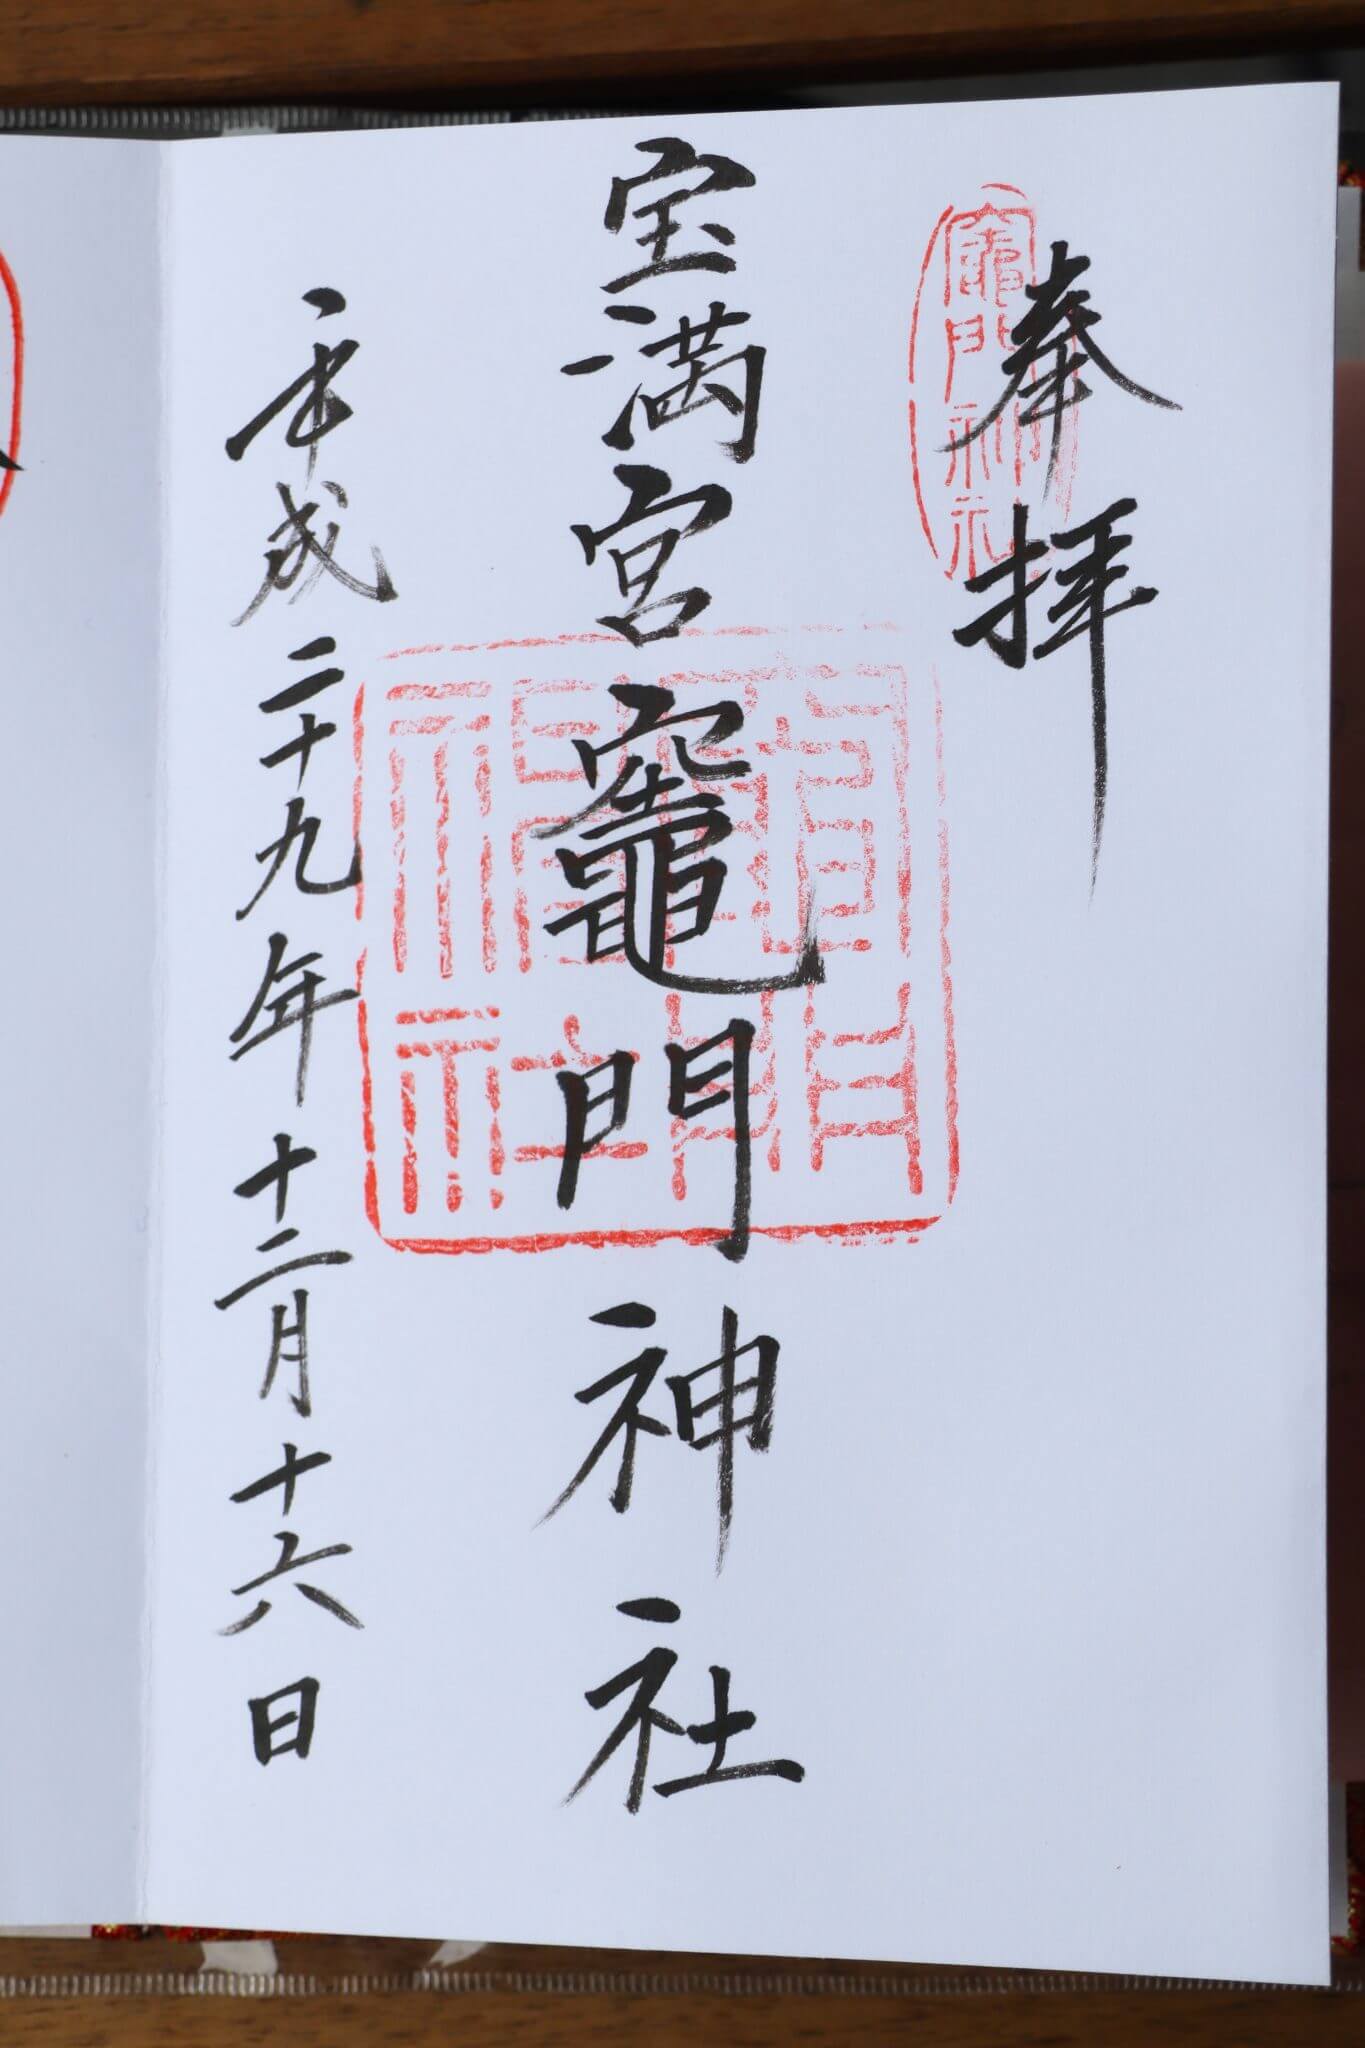 奉拝
竈門神社
宝満宮竈門神社
平成二十九年十二月十六日